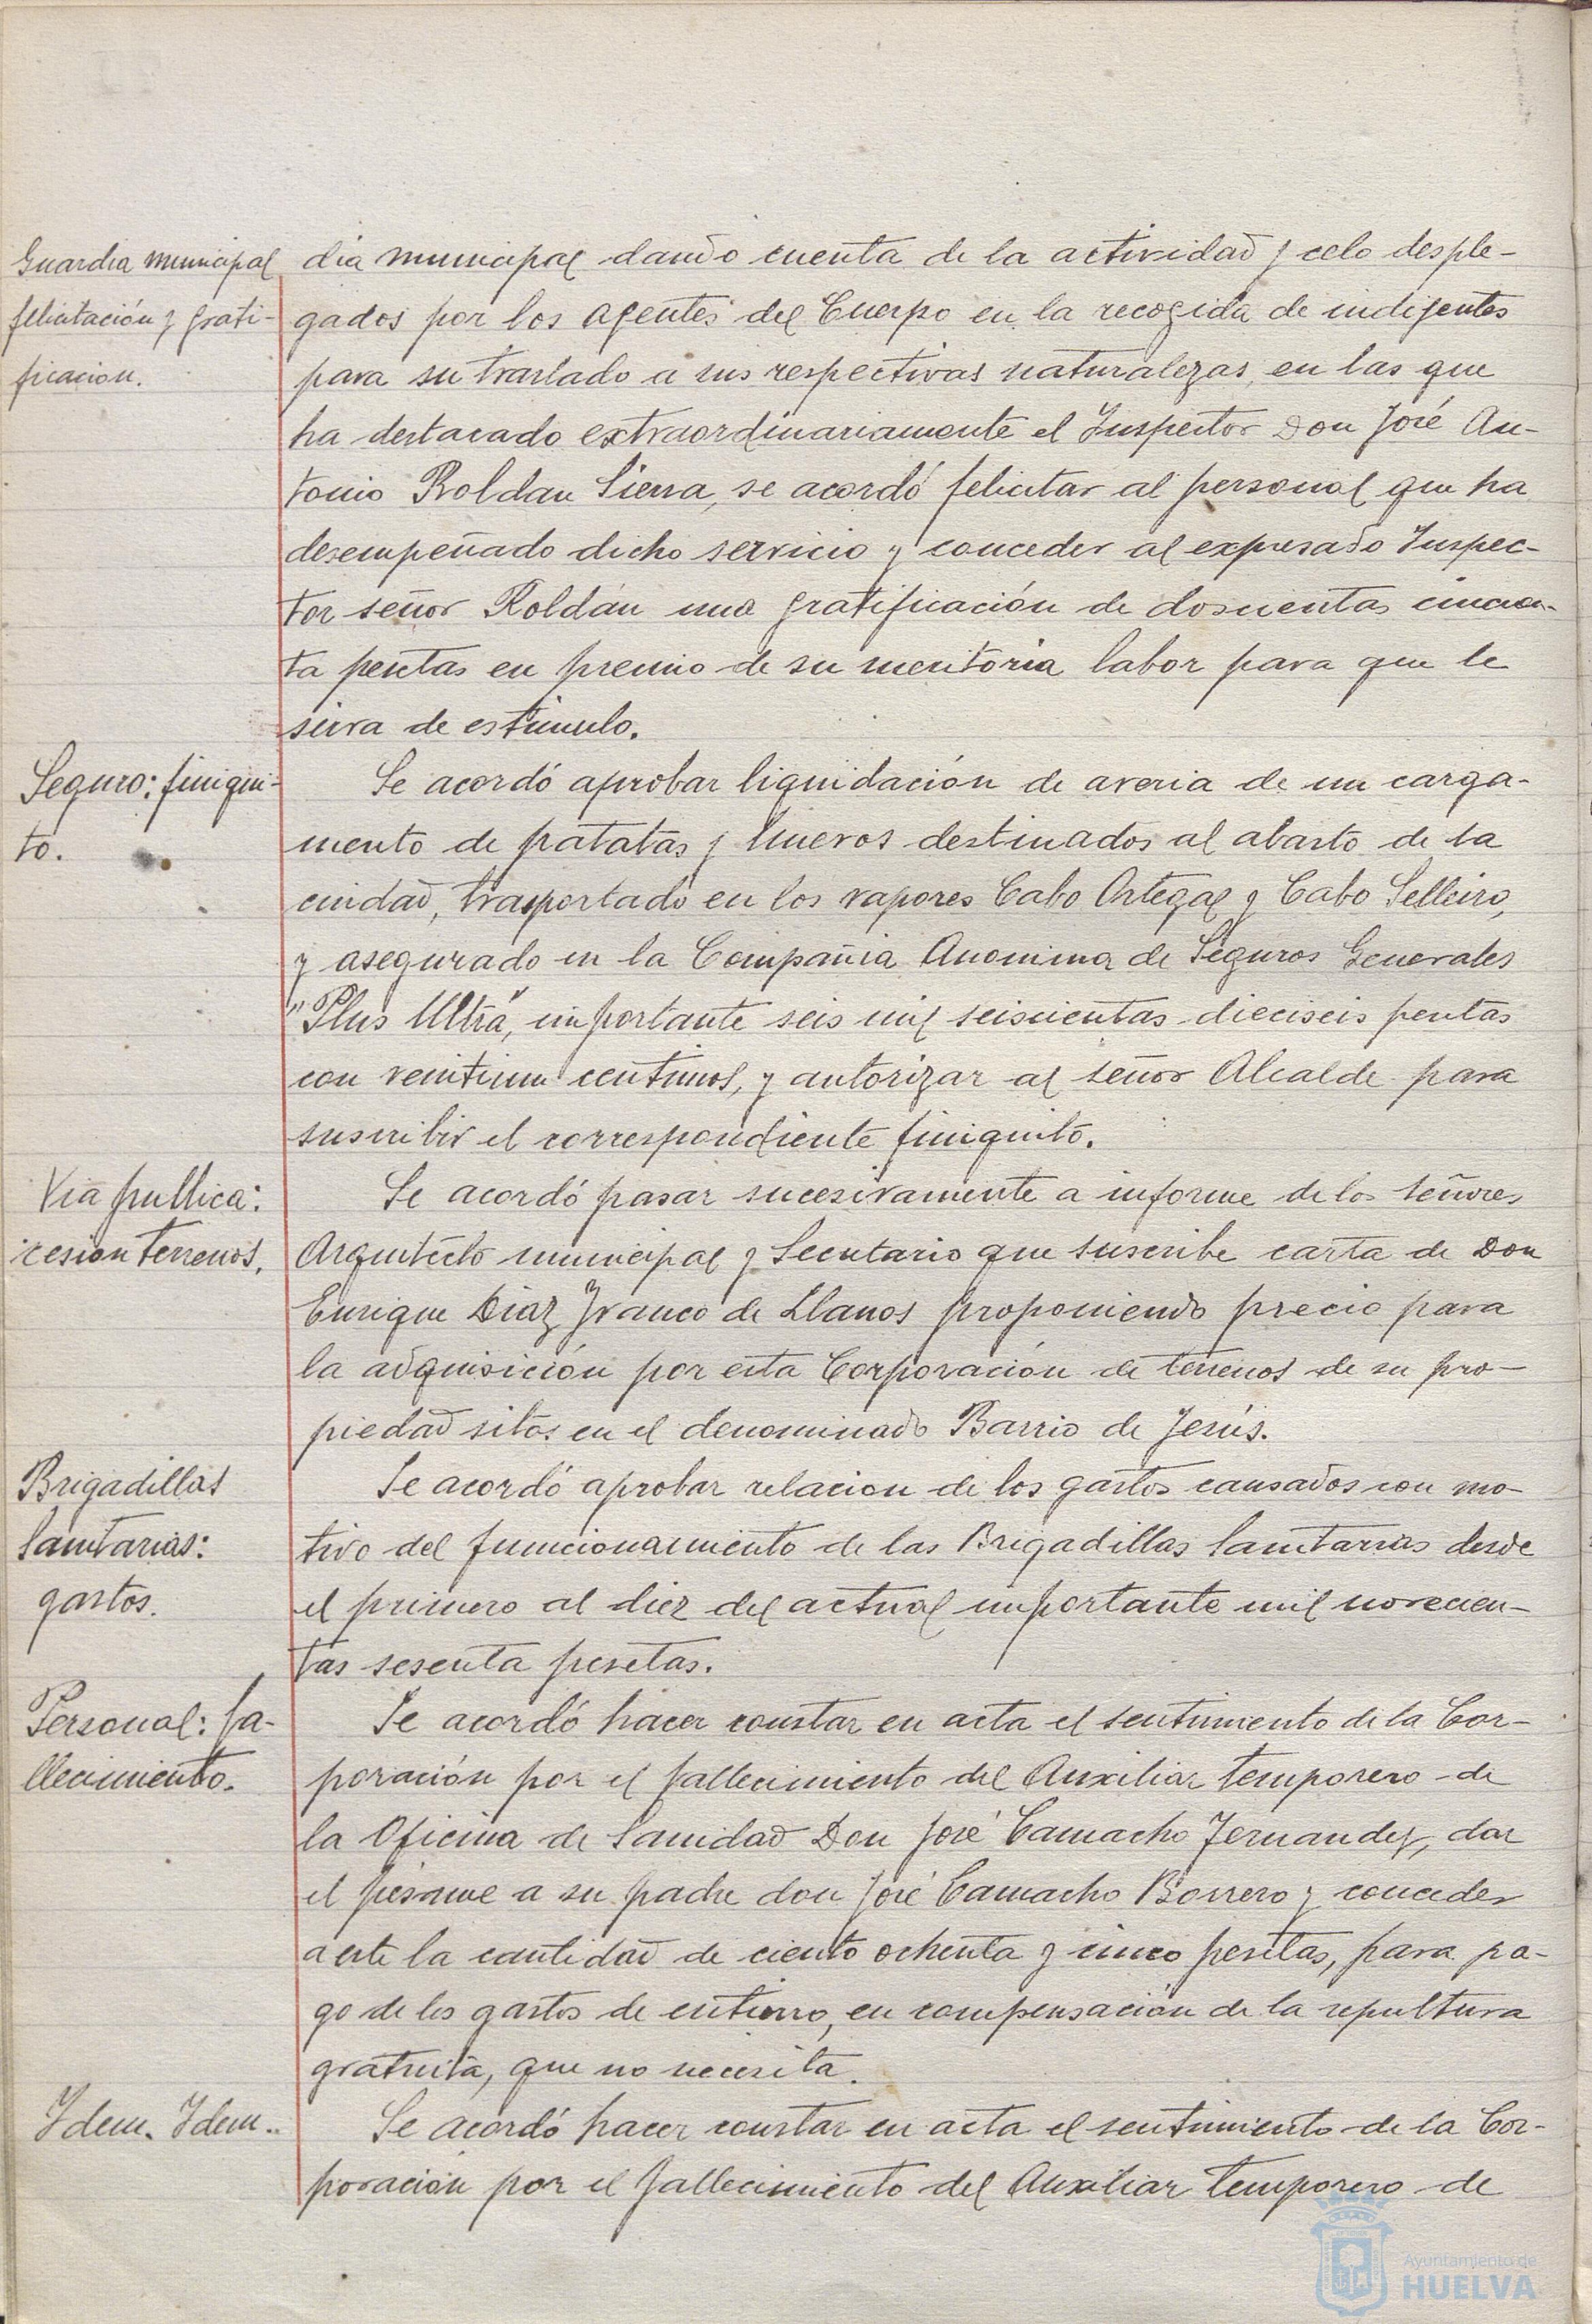 Guardia municipal
felicitación y grati-
ficacion.
dia municipal dando cuenta de la actividad y celo desple-
gados por los agentes del Cuerpo en la recogida de indigentes
para su traslado a sus respectivas naturalezas, en las que
ha destacado extraordinariamente el Inspector Don José An-
tonio Roldan Sierra, se acordó felicitar al personal que ha
desempeñado dicho servicio y conceder al expresado Inspec-
tor señor Roldán una gratificación de doscientas cincuen-
ta pesetas en premio de su meritoria labor para que le
sirva de estimulo.
Seguro: finiqui-
to.
Se acordó aprobar liquidación de averia de un carga-
mento de patatas y huevos destinados al abasto de la
ciudad, trasportado en los vapores Cabo Ortegal y Cabo Selleiro,
y asegurado en la Compañia Anonima de Seguros Generales
"Plus Ultra", importante seis mil seiscientas dieciseis pesetas
con veintiun centimos, y autorizar al señor Alcalde para
suscribir el correspondiente finiquito.
Via publica:
cesion terrenos.
Se acordó pasar sucesivamente a informe de los señores
Arquitecto municipal y Secretario que suscribe carta de Don
Enrique Diaz Franco de Llanos proponiendo precio para
la adquisición por esta Corporación de terrenos de su pro-
piedad sitos en el denominado Barrio de Jesús.
Brigadillas
Sanitarias:
gastos.
Se acordó aprobar relacion de los gastos causados con mo-
tivo del funcionamiento de las Brigadillas Sanitarias desde
el primero al diez del actual importante mil novecien-
tas sesenta pesetas.
Personal: fa-
llecimiento.
Se acordó hacer constar en acta el sentimiento de la Cor-
poración por el fallecimiento del Auxiliar temporero de
la Oficina de Sanidad Don José Camacho Fernandez, dar
el pésame a su padre don José Camacho Borrero y conceder
a este la cantidad de ciento ochenta y cinco pesetas, para pa-
go de los gastos de entierro, en compensación de la sepultura
gratuita, que no necesita.
Idem. Idem..
Se acordó hacer constar en acta el sentimiento de la Cor-
poración por el fallecimiento del Auxiliar temporero de
Ayuntamiento de
HUELVA